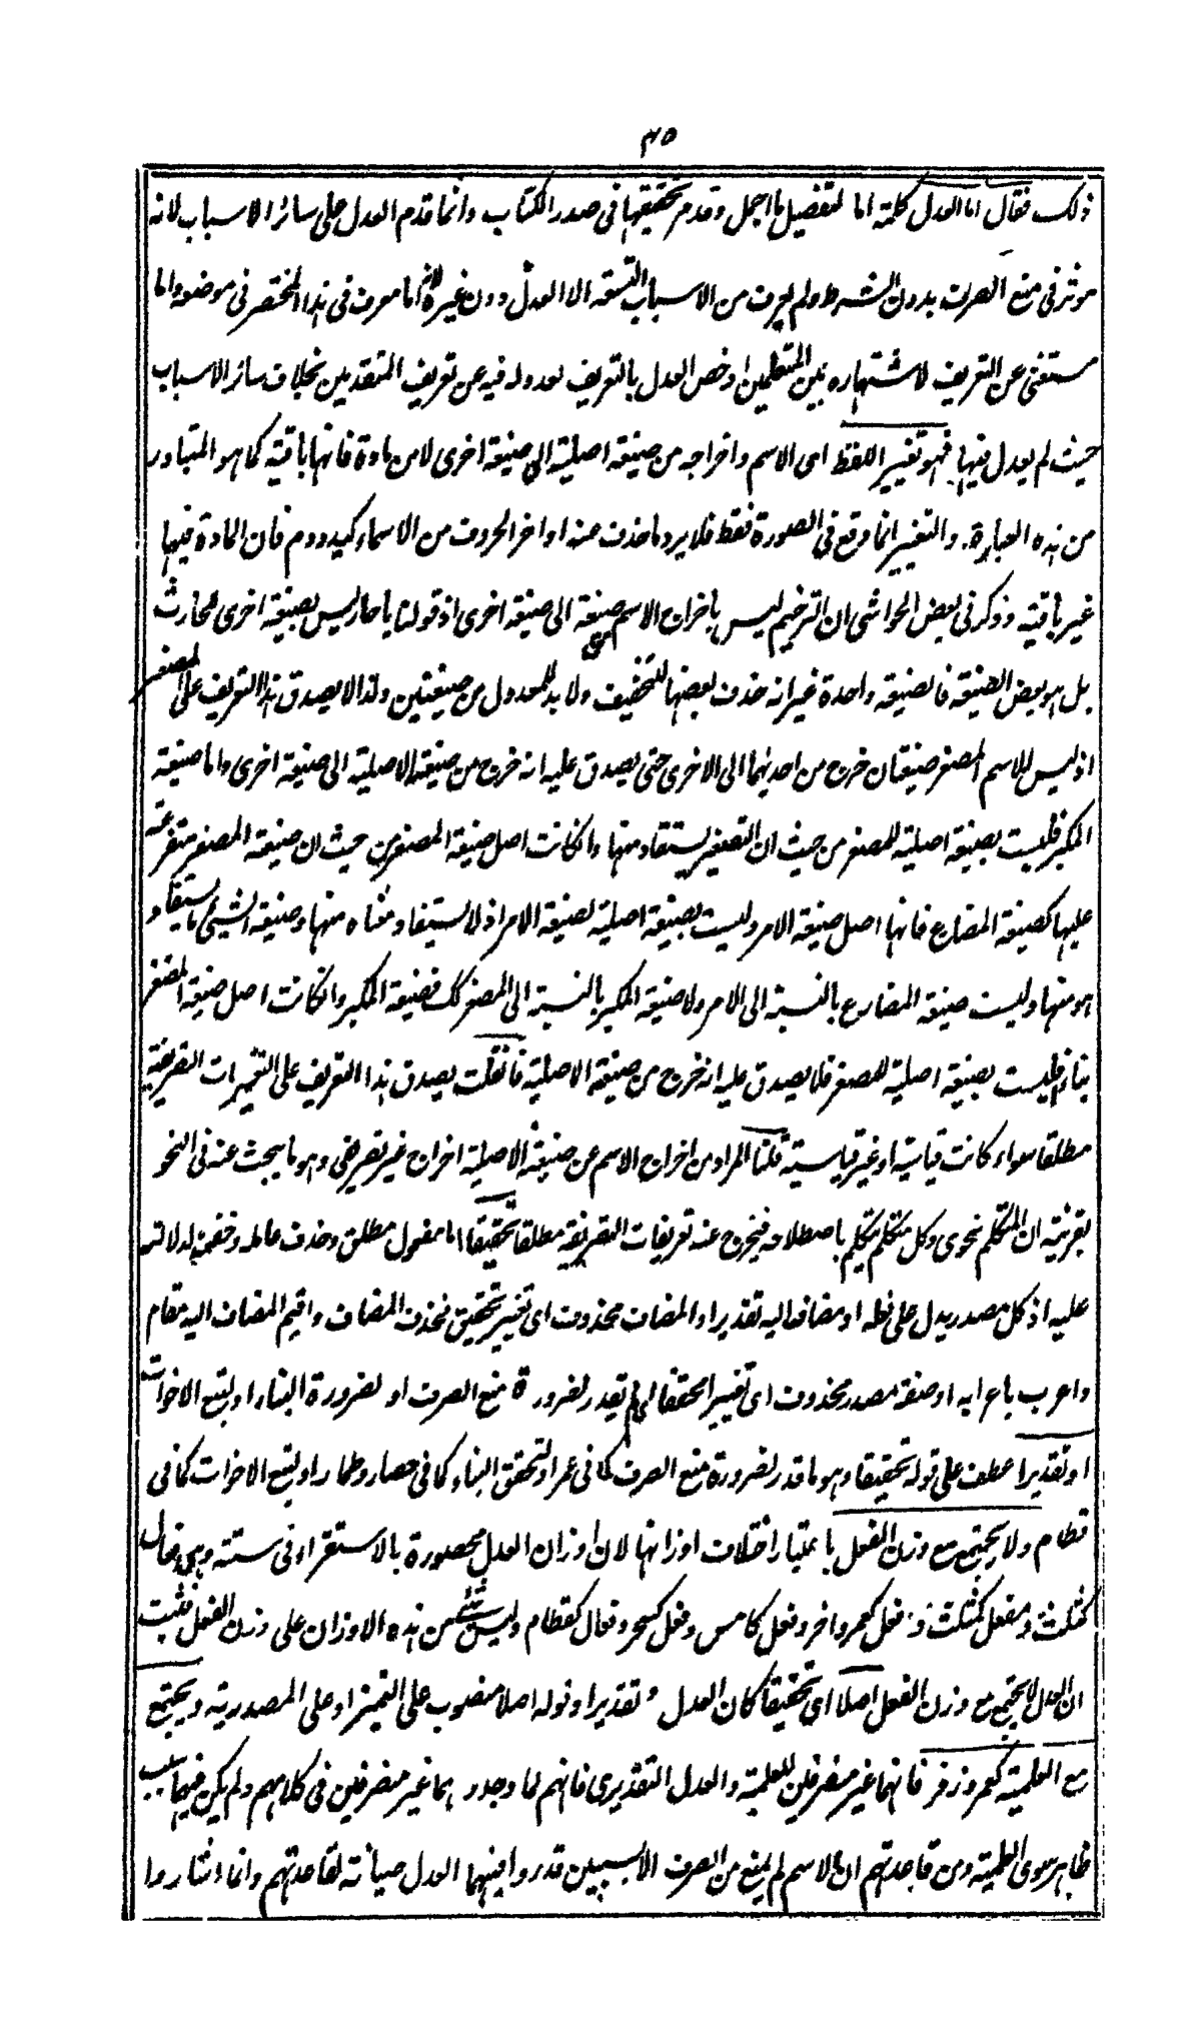 ٣٥
ذلك فقال اما العدل كلمة اما لتفصيل ما اجمل وقد مر تحقيقها فى صدر الكتاب وانما قدم العدل على سائر الاسباب لانه
موثر فى منع الصرف بدون الشرط ولم يعرف من الاسباب التسعة الا العدل دون غيره لانه اما معرف فى هذا المختصر فى موضعه واما
مستغنى عن التعريف لاشتهاره بين المتعلمين او خص العدل بالتعريف لعدوله فيه عن تعريف المتقدمين بخلاف سائر الاسباب
حيث لم يعدل فيها فهو تغيير اللفظ اى الاسم واخراجه من صيغة اصلية الى صيغة اخرى لا من مادة فانها باقية كما هو المتبادر
من هذه العبارة والتغيير انما وقع فى الصورة فقط فلا يرد ما حذف عنه اواخر الحروف من الاسماء كيد ودم فان المادة فيها
غير باقية وذكر فى بعض الحواشى ان الترخيم ليس باخراج الاسم عن صيغة الى صيغة اخرى اذ قولنا يا حار ليس بصيغة اخرى لحارث
بل هو بعض الصيغة فالصيغة واحدة غير انه حذف بعضها للتخفيف ولا بد للمعدول من صيغتين ولذا لا يصدق هذا التعريف على المصغر
اذ ليس للاسم المصغر صيغتان خرج من احديهما الى الاخرى حتى يصدق عليه انه خرج من صيغته الاصلية الى صيغة اخرى واما صيغة
المكبر فليست بصيغة اصلية للمصغر من حيث ان التصغير يستفاد منها وان كانت اصل صيغة المصغر من حيث ان صيغة المصغر متفرعة
عليها كصيغة المضارع فانها اصل صيغة الامر وليست بصيغة اصلية لصيغة الامر اذ لا يستفاد معناه منها وصيغة الشيئ ما يستفاد
هو منها وليست صيغة المضارع بالنسبة الى الامر ولا صيغة المكبر بالنسبة الى المصغر كك فصيغة المكبر وان كانت اصل صيغة المصغر
بناء فليست بصيغة اصلية للمصغر فلا يصدق عليه انه خرج من صيغته الاصلية فان قلت يصدق هذا التعريف على التغيرات التصريفية
مطلقا سواء كانت قياسية او غير قياسية قلنا المراد من اخراج الاسم عن صيغته الاصلية اخراج غير تصريفى وهو ما يبحث عنه فى النحو
بقرينة ان المتكلم نحوى وكل متكلم يتكلم باصطلاحه فيخرج عنه تعريفات التصريفية مطلقا تحقيقا اما مفعول مطلق وحذف عامله وخفض لدلالته
عليه اذ كل مصدر يدل على فعله او مضاف اليه تقديرا والمضاف محذوف اى تغيير تحقيق فحذف المضاف واقيم المضاف اليه مقام
واعرب باعرابه او صفة مصدر محذوف اى تغييرا محققا اى لم يقدر لضرورة منع الصرف او لضرورة البناء او بتبع الاخوات
او تقديرا عطف على قوله تحقيقا وهو ما قدر لضرورة منع الصرف كما فى عمر او لتحقق البناء كما فى حصار وطمار او بتبع الاخوات كما فى
قطام ولا يجتمع مع وزن الفعل باعتبار اختلاف اوزانها لان اوزان العدل محصورة بالاستقراء فى ستة وهى فعال
كثلث ومفعل كمثلث وفعل كعمر واخر وفعل كامس وفعل كسحر وفعال كقطام وليس شيئ من هذه الاوزان على وزن الفعل فثبت
ان العدل لا يجتمع مع وزن الفعل اصلا اى تحقيقا كان العدل او تقديرا وقوله اصلا منصوب على التميز او على المصدرية ويجتمع
مع العلمية كعمر وزفر فانهما غير منصرفين للعلمية والعدل التقديرى فانهم لما وجدوهما غير منصرفين فى كلامهم ولم يكن فيهما سبب
ظاهر سوى العلمية ومن قاعدتهم ان الاسم لم يمنع من الصرف الا بسببين قدروا فيهما العدل صيانة لقاعدتهم وانما اشاروا